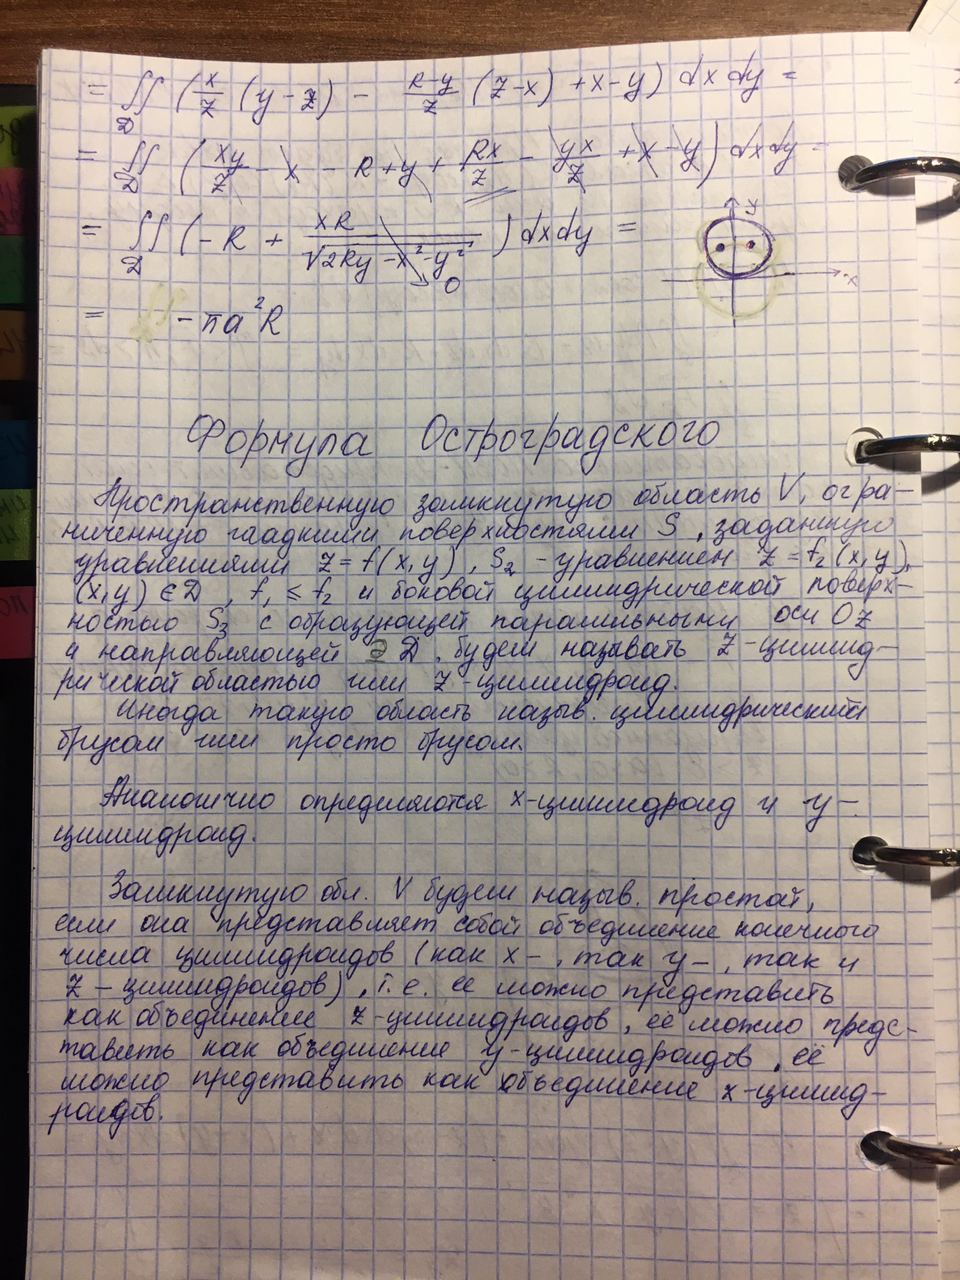 = ∬ ( x/z (y - z) - R-y/z (z-x) + x-y ) dx dy =
D
= ∬ ( xy/z - x - R + y + Rx/z - yx/z + x - y ) dx dy =
D
= ∬ ( -R + xR/√2Ry - x² - y² ) dx dy =
D
0
y
x
= -πa²R
Формула Остроградского
Пространственную замкнутую область V, огра-
ниченную гладкими поверхностями S, заданную
уравнениями z = f(x,y), S₂ - уравнением z = f₂(x,y),
(x,y) ∈ D, f₁ ≤ f₂ и боковой цилиндрической поверх-
ностью S₃ с образующей параллельными оси Oz
и направляющей ∂D, будем называть z-цилинд-
рической областью или z-цилиндроид.
Иногда такую область назыв. цилиндрическим
брусом или просто брусом.
Аналогично определяются x-цилиндроид и y-
цилиндроид.
Замкнутую обл. V будем назыв. простой,
если она представляет собой объединение конечного
числа цилиндроидов (как x-, так y-, так и
z-цилиндроидов), т.е. ее можно представить
как объединение z-цилиндроидов, её можно предс-
тавить как объединение y-цилиндроидов, её
можно представить как объединение x-цилинд-
роидов.